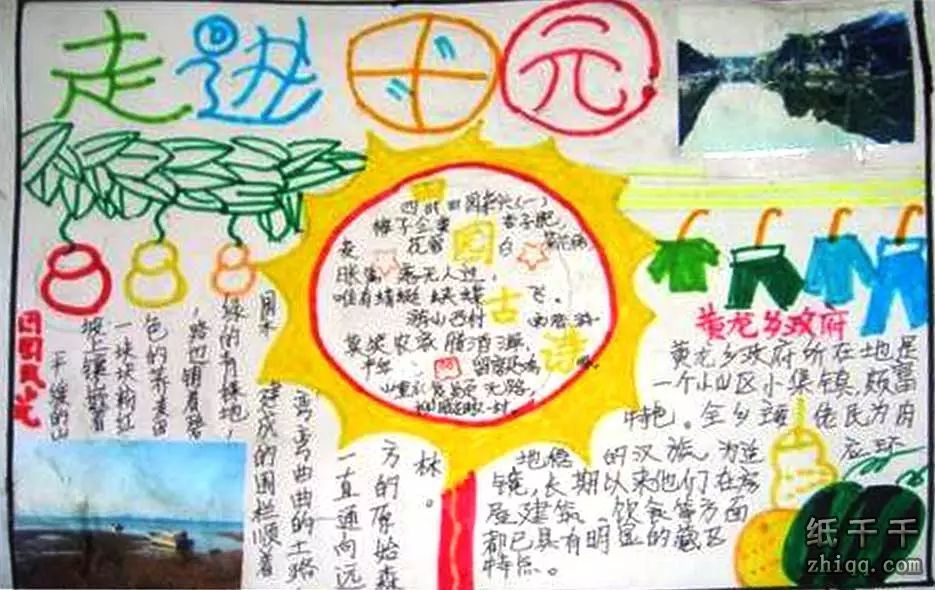 走进田园
田园古诗
四时田园杂兴(一)
梅子金黄杏子肥，
麦花雪白菜花稀
日长篱落无人过，
唯有蜻蜓蛱蝶飞。
游山西村
莫笑农家腊酒浑，
丰年留客足鸡豚
山重水复疑无路，
田园风光
平缓的山
坡上镶嵌着
一块块粉红
色的荞麦田
，路也铺着碧
绿的有棵地，
用木
建成的围栏顺着
弯弯曲曲的土路
一直通向远
方的原始森
林。
黄龙乡政府
黄龙乡政府所在地是
一个小山区小集镇,颇富
特色。全乡 居民为内
地 的汉族,为适应环
境,长期以来他们在房
屋建筑、饮食等方面
都已具有明显的藏区
特点。
纸千千
zhiqq.com